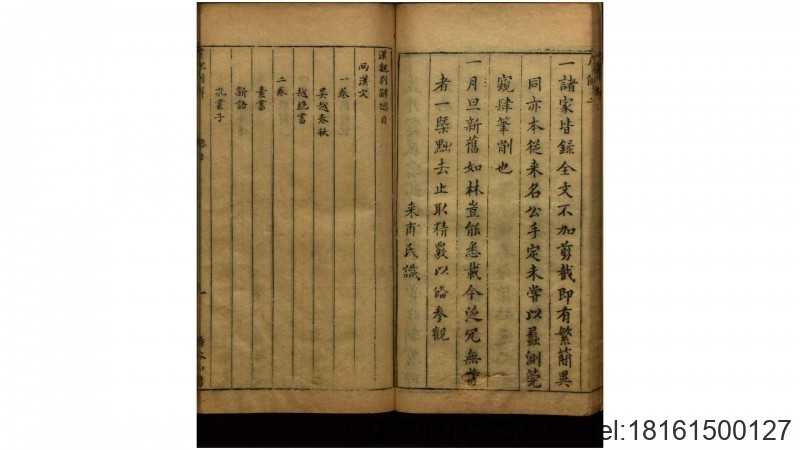 一諸家皆錄全文不加剪裁即有繁簡異
同亦本從來名公手定未嘗以蠡測莞
窺肆筆削也
一月旦新舊如林豈能悉載今從冗無當
者一槩黜去止取精嚴以俻參觀
來甫氏識
漢魏別解總目
兩漢文
一卷
吳越春秋
越絕書
二卷
素書
新語
孔叢子
el:18161500127